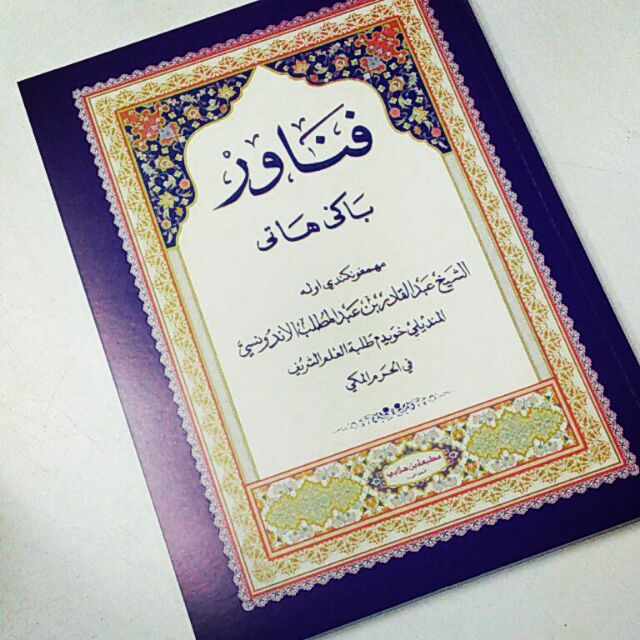 فناور
باكي هاتي
مڠهمفونكندي اوله
الشيخ عبد القادر بن عبد المطلب الاندونيسي
المنديلي خويدم طلبة العلم الشريف
في الحرم المكي